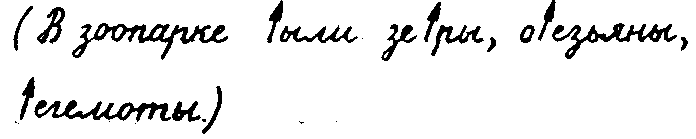 (В зоопарке ↑ыли зе↑ры, о↑езьяны,
↑егемоты.)